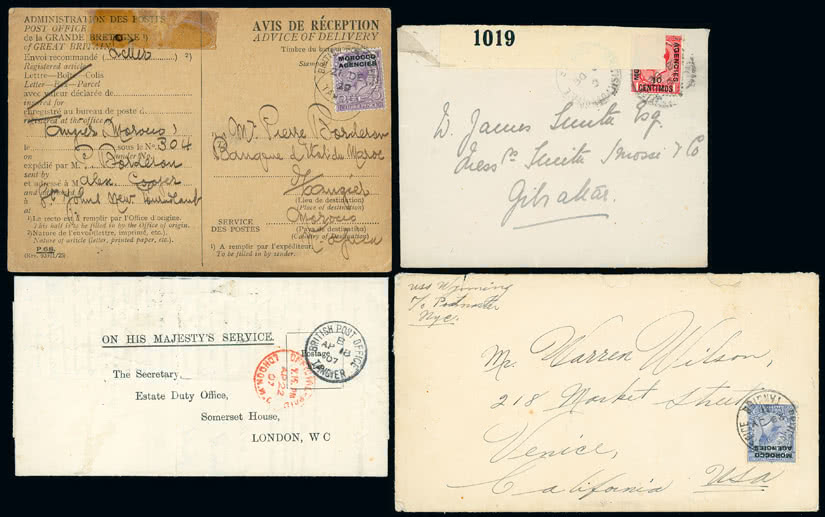 ADMINISTRATION DES POSTES
POST OFFICE
de la GRANDE BRETAGNE ¹)
of GREAT BRITAIN
Envoi recommandé ²)
Registered article
Lettre—Boîte—Colis
Letter—Box—Parcel
avec valeur déclarée de
insured for
enregistré au bureau de poste d
registered at the office
Tangier Morocco
le sous le Nº 304
on under No.
expédié par M. P. Borderon
sent by
et adressé à M Alex. Cooper
and addressed
à St. Johns New
at
¹) Le recto est à remplir par l'Office d'origine.
This half to be filled in by the office of origin.
²) Nature de l'envoi (lettre, imprimé, etc.)
Nature of article (letter, printed paper, etc.)
P.68.
AVIS DE RÉCEPTION
ADVICE OF DELIVERY
Timbre du bureau
Stamp
MOROCCO
AGENCIES
BRITISH
DE
29
Mr. Pierre Borderon
Banque d'Etat du Maroc
Tangier
(Lieu de destination)
(Place of destination)
Morocco
(Pays de destination)
(Country of Destination)
SERVICE
DES POSTES
¹) A remplir par l'expéditeur.
To be filled in by sender.
1019
AGENCIES
10
CENTIMOS
D. James Smith Esq.
Mess rs Smith Imossi & Co
Gibraltar.
ON HIS MAJESTY'S SERVICE.
The Secretary,
Estate Duty Office,
Somerset House,
LONDON, W C
Postage
BRITISH POST OFFICE
B
AP 18
07
TANGIER
OFFICIAL PAID
AP 22
07
LONDON
USS Wyoming
c/o Postmaster
Nyc.
Mr. Warren Wilson,
218 Market Street
Venice,
California USA
MOROCCO
AGENCIES
TANGIER